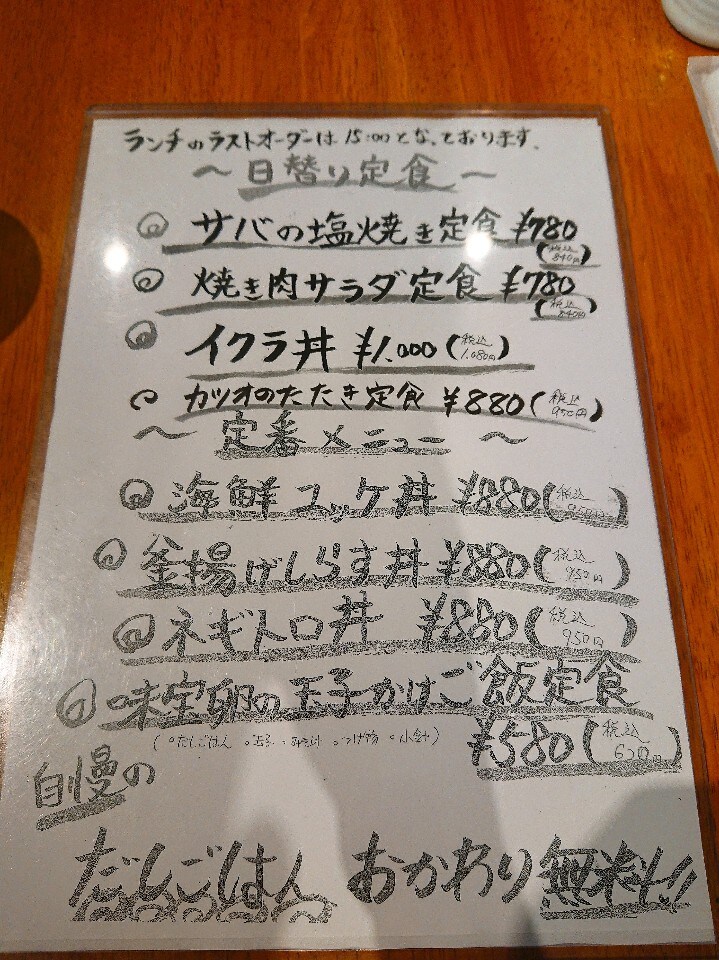 ランチのラストオーダーは 15:00となっております.
～日替り定食～
サバの塩焼き定食 ¥780
(税込 840円)
焼き肉サラダ定食 ¥780
(税込 840円)
イクラ丼 ¥1.000(税込 1.080円)
カツオのたたき定食 ¥880(税込 950円)
～ 定番メニュー ～
海鮮ユッケ丼 ¥880(税込 950円)
釜揚げしらす丼 ¥880(税込 950円)
ネギトロ丼 ¥880(税込 950円)
味宝卵の玉子かけご飯定食
(○だしごはん ○玉子 ○みそ汁 ○つけ物 ○小鉢)
¥580(税込 620円)
自慢の
だしごはん おかわり無料!!